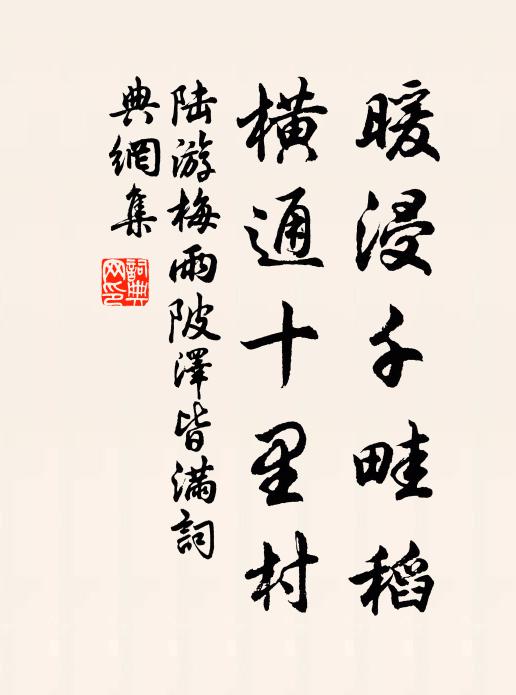 暖浸千畦稻
橫通十里村
陆游梅雨陂澤皆满詞
典網集
詞典网印